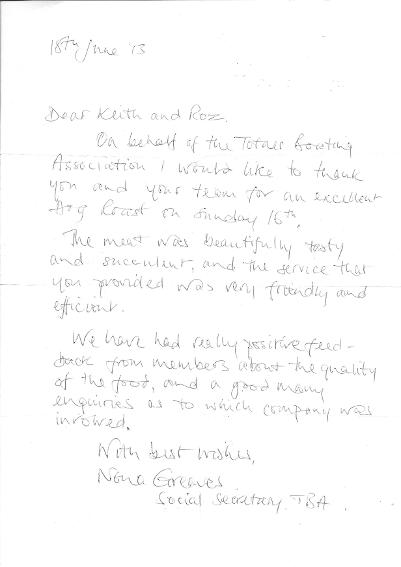 18th June '13
Dear Keith and Roz.
On behalf of the Totnes Boating
Association I would like to thank
you and your team for an excellent
Hog Roast on Sunday 16th.
The meat was beautifully tasty
and succulent, and the service that
you provided was very friendly and
efficient.
We have had really positive feed-
back from members about the quality
of the food, and a good many
enquiries as to which company was
involved.
With best wishes,
Nona Greaves
Social Secretary, TBA